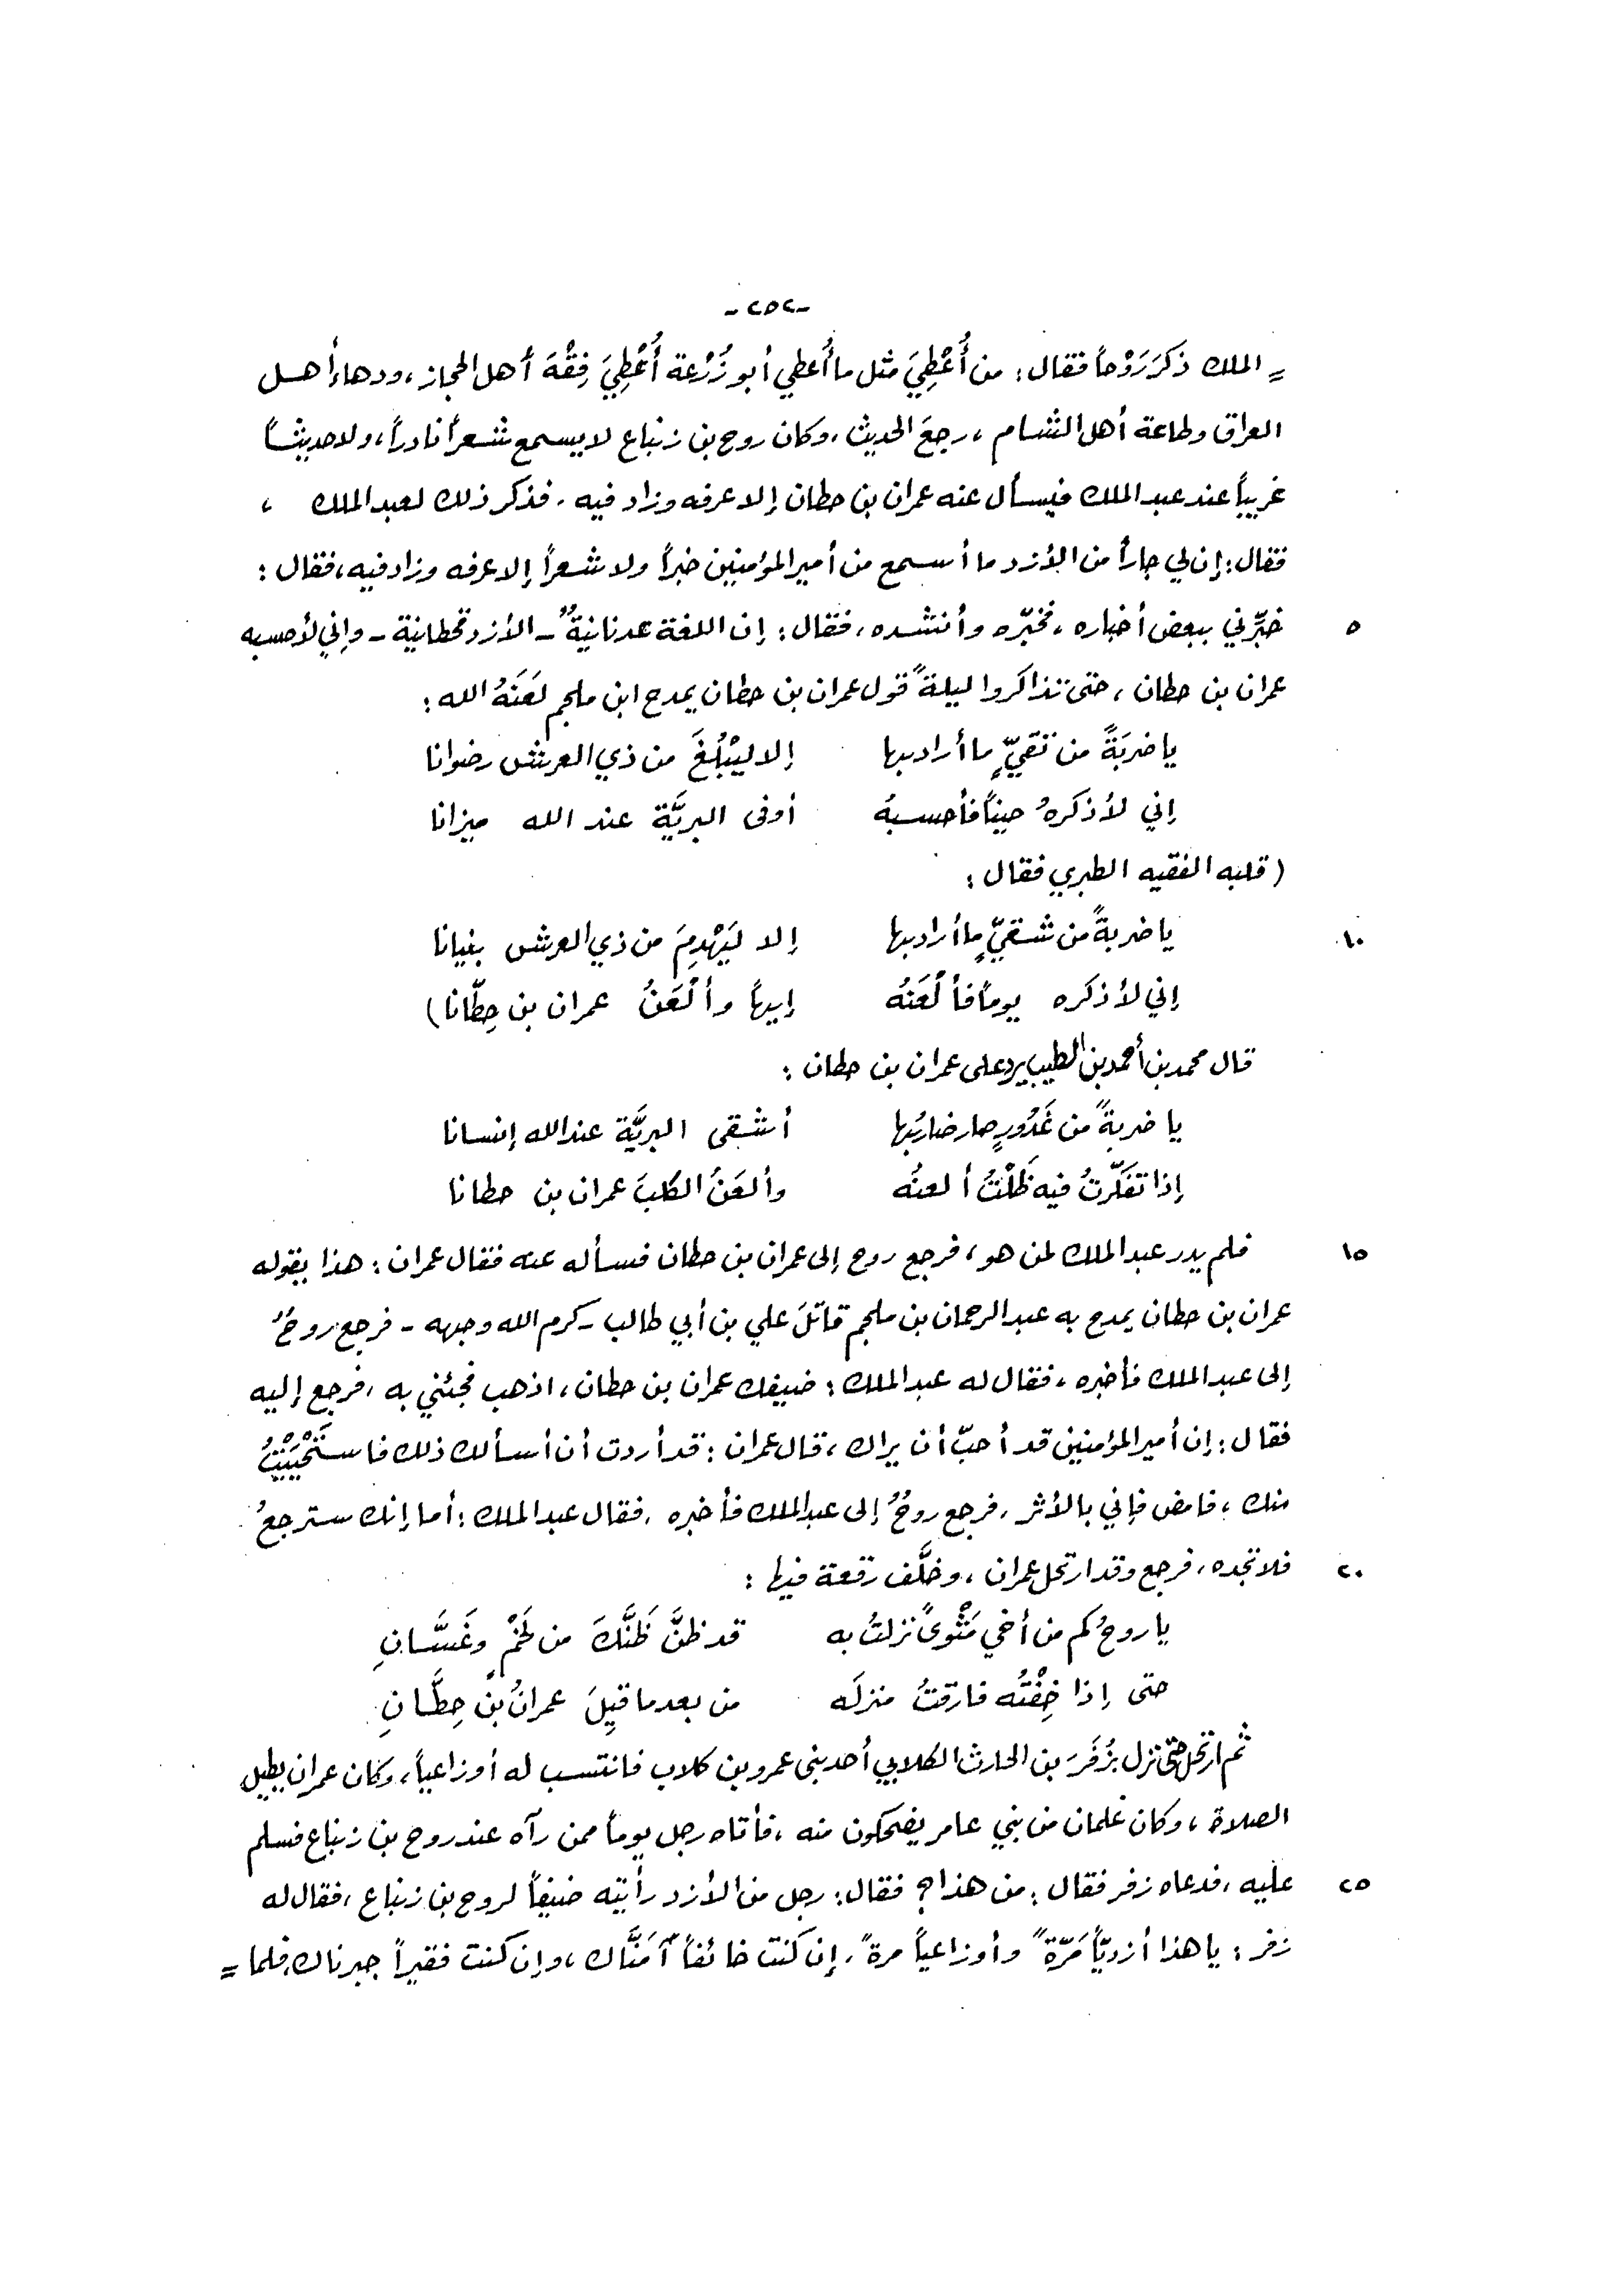 -٢٥٢-
= الملك ذكَرَ رَوْحاً فقال: من أُعْطِيَ مثل ما أُعطي أبو زُرْعة أُعْطِيَ فِقْهَ أهل الحجاز، ودهاء أهل
العراق وطاعة أهل الشام، رجعَ الحديث، وكان روح بن زنباع لا يسمع شعراً نادراً، ولا حديثاً
غريباً عند عبد الملك فيسأل عنه عمران بن حطان إلا عرفه وزاد فيه. فذكر ذلك لعبد الملك ،
فقال: إن لي جاراً من الأزد ما أسمع من أمير المؤمنين خبراً ولا شعراً إلا عرفه وزاد فيه، فقال:
خبِّرني ببعض أخباره، فخبّره وأنشده، فقال: إن اللغة عدنانيةٌ - الأزد قحطانية - وإني لأحسبه ٥
عمران بن حطان، حتى تذاكروا ليلةً قول عمران بن حطان يمدح ابن ملجم لعَنَهُ الله:
يا ضربَةً من تقيٍّ ما أراد بها إلا ليَبْلُغَ من ذي العرش رضوانا
إني لأذكرهُ حيناً فأحسبهُ أوفى البريَّة عند الله ميزانا
(قلبه الفقيه الطبري فقال:
يا ضربةً من شقيٍّ ما أراد بها إلا لَيَهْدِمَ من ذي العرش بنيانا ١٠
إني لأذكره يوماً فألْعَنُه إيهاً وألْعَنُ عمران بن حِطّانا)
قال محمد بن أحمد بن الطيب يرد على عمران بن حطان:
يا ضربةً من غَدُورٍ صار ضاربُها أشقى البريَّة عند الله إنسانا
إذا تفكّرتُ فيه ظَلْتُ ألعنُه وألعَنُ الكلبَ عمران بن حطانا
فلم يدر عبد الملك لمن هو، فرجع روح إلى عمران بن حطان فسأله عنه فقال عمران: هذا يقوله ١٥
عمران بن حطان يمدح به عبد الرحمان بن ملجم قاتلَ علي بن أبي طالب - كرم الله وجهه - فرجع روحٌ
إلى عبد الملك فأخبره، فقال له عبد الملك: ضيفك عمران بن حطان، اذهب فجئني به، فرجع إليه
فقال: إن أمير المؤمنين قد أحبّ أن يراك، قال عمران: قد أردت أن أسألك ذلك فاستَحْيَيْتُ
منك، فامض فإني بالأثر، فرجع روحٌ إلى عبد الملك فأخبره، فقال عبد الملك: أما إنك سترجعُ
فلا تجده، فرجع وقد ارتحل عمران، وخلَّف رقعة فيها: ٢٠
يا روحُ كم من أخي مَثْوىً نزلتُ به قد ظنَّ ظَنَّكَ من لَخْمٍ وغَسَّانِ
حتى إذا خِفْتُه فارقتُ منزلَه من بعد ما قيِلَ عمرانُ بنُ حِطَّانِ
ثم ارتحل حتى نزل بزُفَرَ بن الحارث الكلابي أحد بني عمرو بن كلاب فانتسب له أوزاعياً، وكان عمران يطيل
الصلاة، وكان غلمان من بني عامر يضحكون منه، فأتاه رجل يوماً ممن رآه عند روح بن زنباع فسلم
عليه، فدعاه زفر فقال: من هذا؟ فقال: رجل من الأزد رأيته ضيفاً لروح بن زنباع، فقال له ٢٥
زفر: يا هذا أزديّاً مَرّةً وأوزاعياً مرةً، إن كنت خائفاً آمَنَّاك، وإن كنت فقيراً جبرناك، فلما =